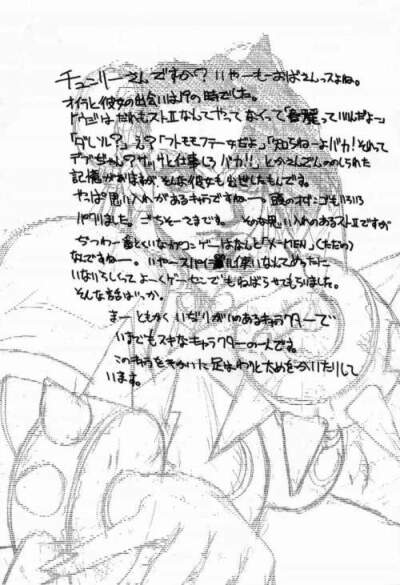 チュンリーさんですか? いやーもーおばさんっスよね。
オイラと彼女の出会いは19の時でした。
トウジはだれもストⅡなんてやってなくって「春麗っていいんだよー」
「ダレソレ?」え?「フトモモフテー女だよ」「知らねーよバカ!それって
デブちゃん?サッサと仕事しろバカ!!」とかさんざんののしられた
記憶がありますが、そんな彼女も出世したもんです。
やっぱ思い入れがあるキャラですねー。頭のボンボンもいろいろ
パクリました。ごちそーさまです。その思い入れのあるストⅡですが
じつわー番とくいなカクゲーはなんと「X-MEN」(ただの)
なんですねー。いやースパイラル使いなんてめったに
いないらしくってよーくゲーセンでもねばらせてもらいました。
そんな話ばっか。
まー ともかく いぢりがいのあるキャラクターで
いまでもスキなキャラクターの一人です。
このキャラをキッカケに足はわりと太めを
います。